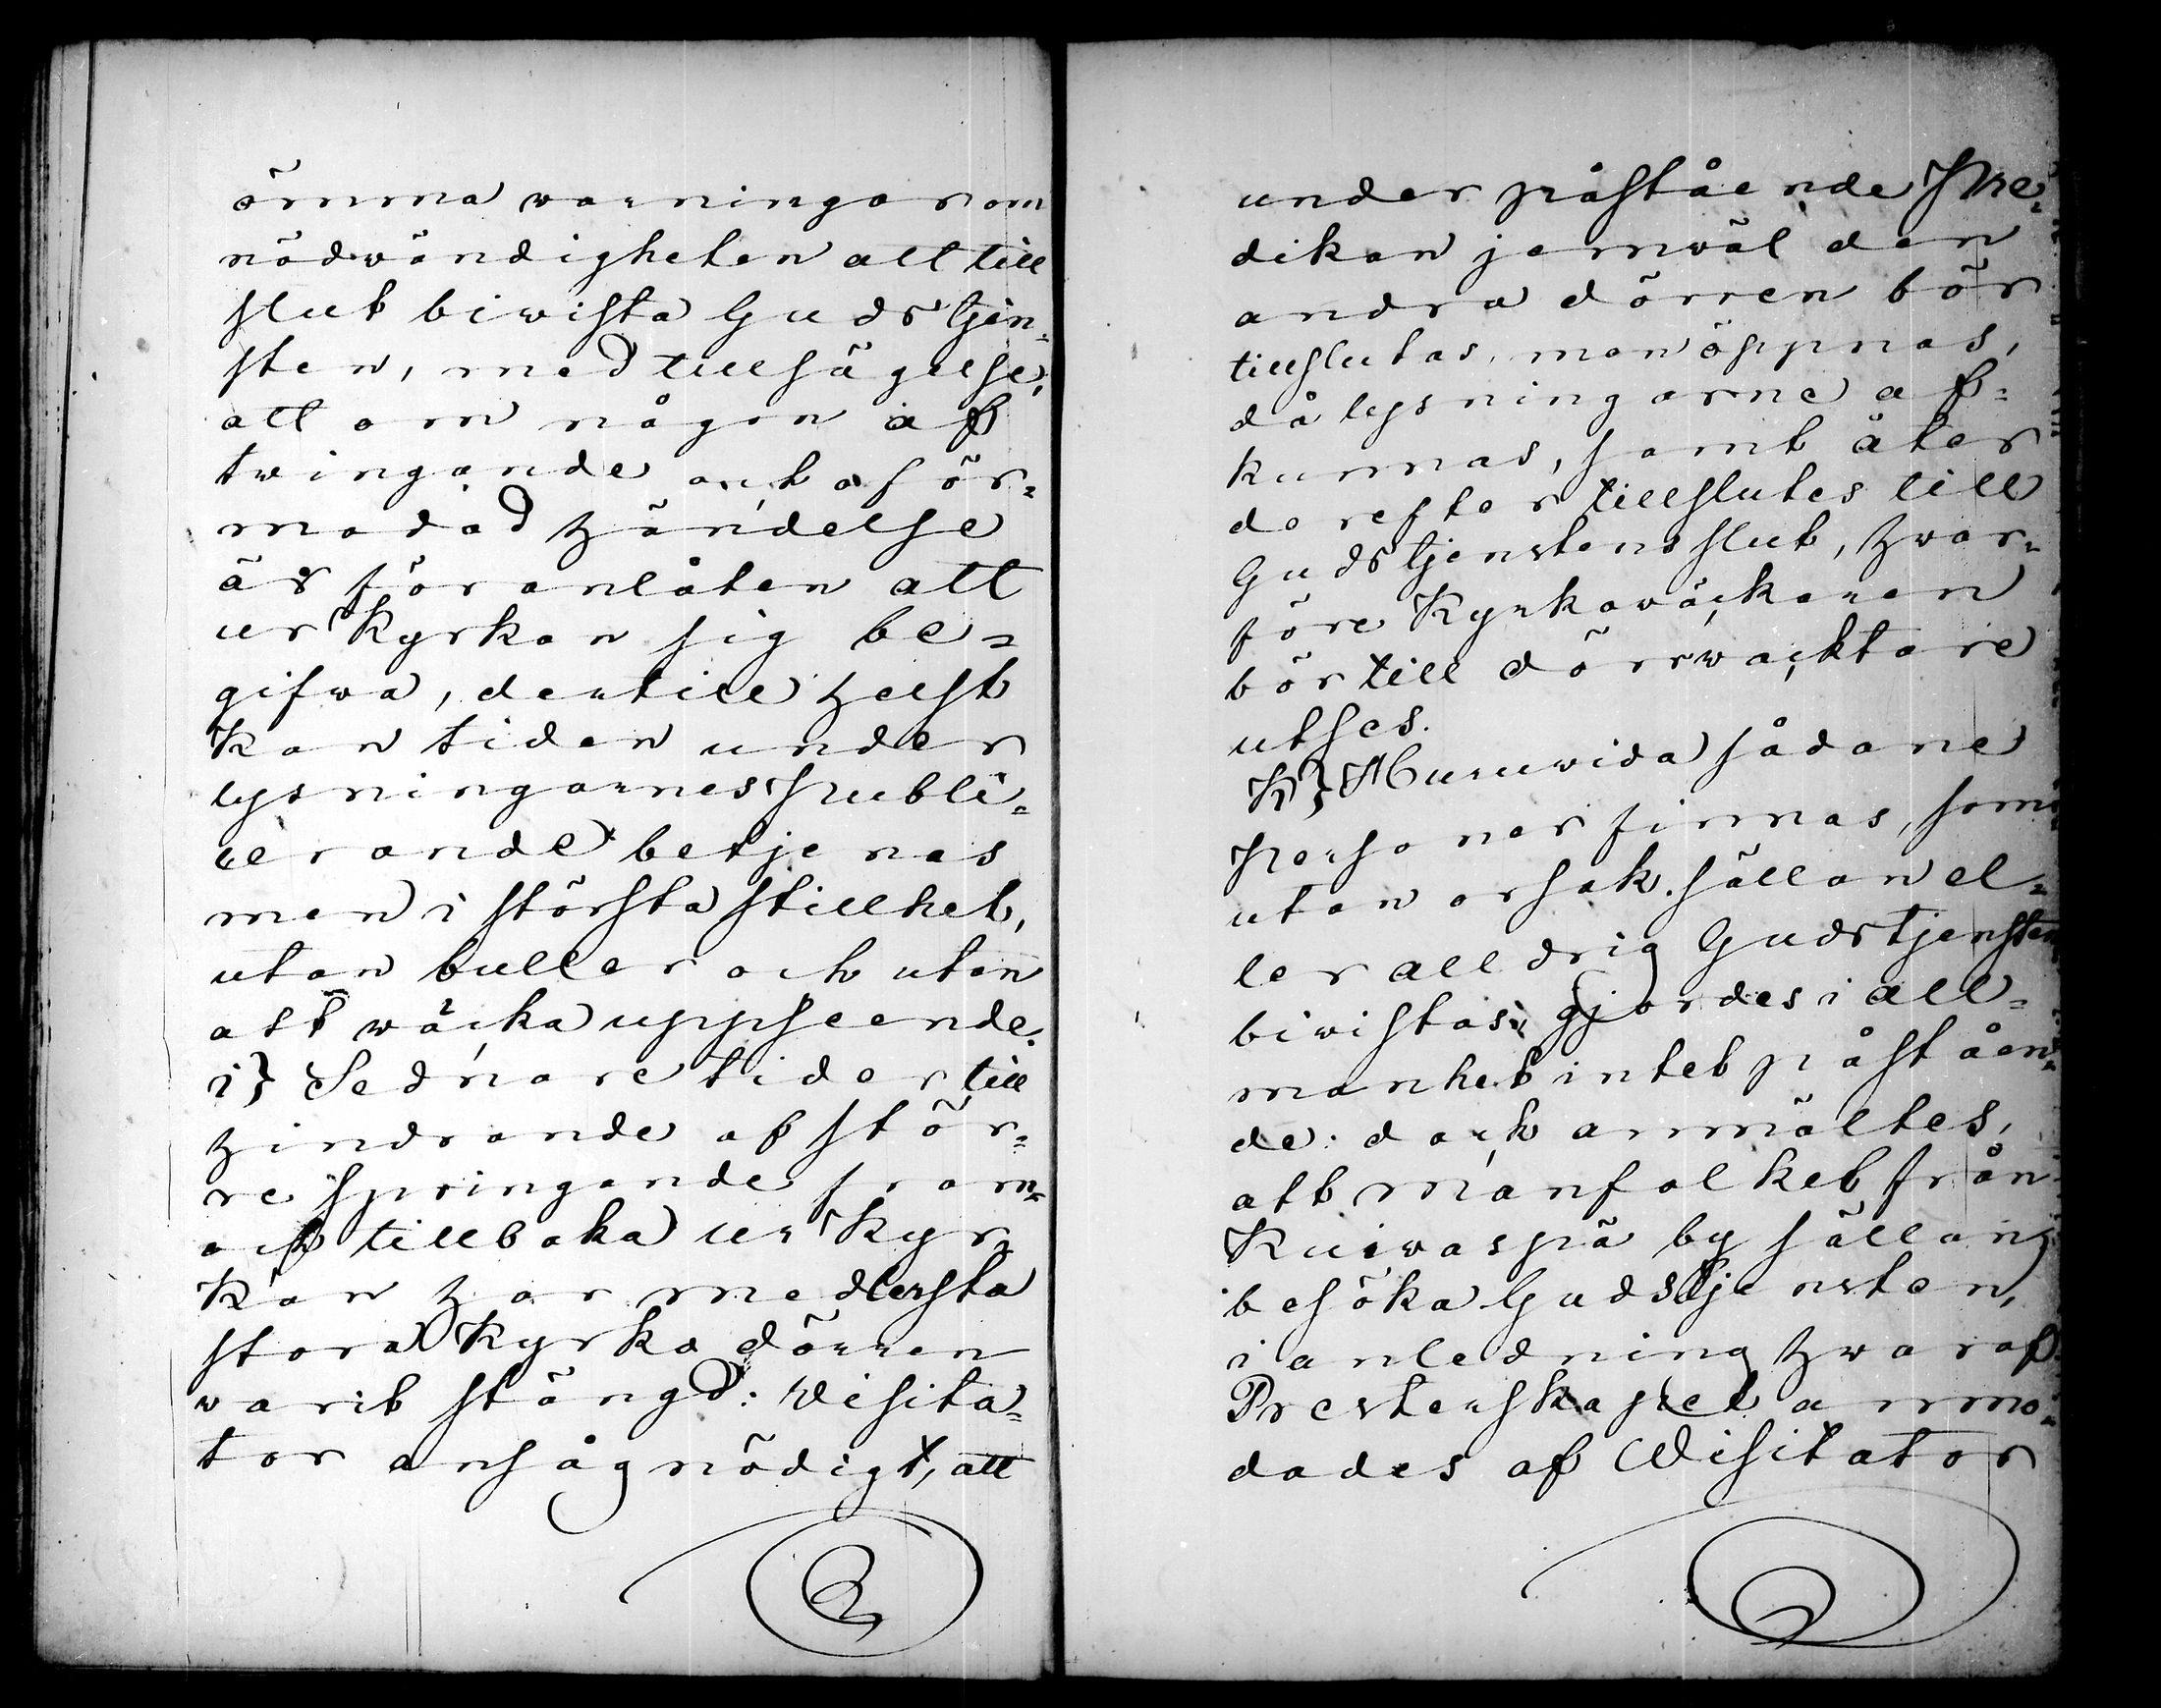 ömma warningar om
nödwändigheten att till
slut biwista Gudstjen=
sten, med tillsägelse,
att om någon af
twingande och oför=
modad händelse
är föranlåten att
ur Kyrkan sig be=
gifwa, dertill helst
kan tiden under
lysningarnes publi=
cerande betjenas
men i största stillhet,
utan buller och utan
att wäcka uppseende.
i} Sednare tider till
hindrande af stör=
re springande fram
och tillbaka ur Kyr
kan har medlersta
stora Kyrko dörren
warit stängd: Visita=
tor ansåg nödigt, att
under påstående Pre=
dikan jemwäl den
andra dörren bör
tillslutas, men öppnas,
då lysningarne af=
kunnas, samt åter
derefter tillslutes till
Gudstjenstens slut, hwar=
före Kyrkowäckaren
bör till dörrwacktare
utses.
K} Huruwida sådane
Personer finnas, som
utan orsak sällan el=
ler alldrig Gudstjensten
biwistas; gjordes i all=
manhet intet påståen=
de: dock anmältes,
att manfolket från
Kuiwaspä by sällan
besöka Gudstjensten,
i anledning hwaraf
Presterskapet anmo=
dades af Visitator